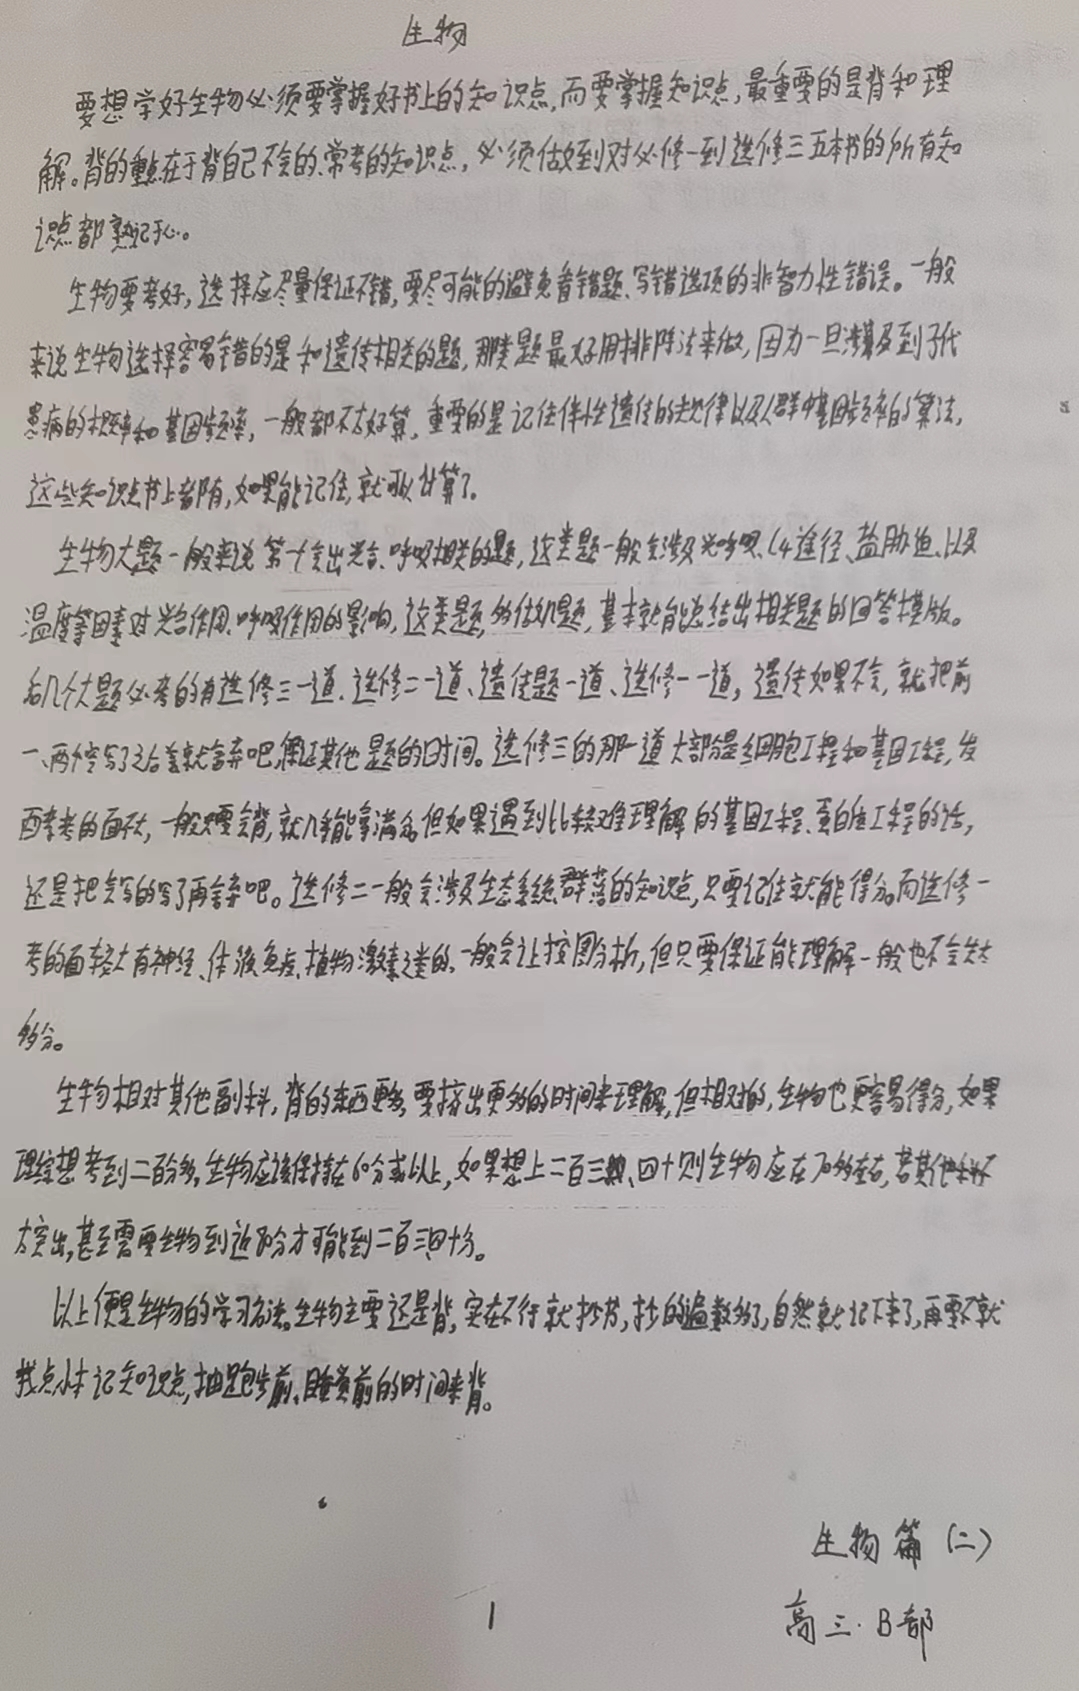 生物
要想学好生物必须要掌握好书上的知识点,而要掌握知识点,最重要的是背和理
解。背的重点在于背自己不会的、常考的知识点,必须做到对必修一到选修三五本书的所有知
识点都熟记于心。
生物要考好,选择应尽量保证不错,要尽可能的避免看错题、写错选项的非智力性错误。一般
来说生物选择容易错的是和遗传相关的题,那类题最好用排除法来做,因为一旦涉及到子代
患病的概率和基因频率,一般都不太好算,重要的是记住伴性遗传的规律以及人群中基因频率的算法,
这些知识点书上都有,如果能记住,就可以计算了。
生物大题一般来说第一个会出光合、呼吸相关的题,这类题一般会涉及光呼吸、C4途径、盐胁迫、以及
温度等因素对光合作用、呼吸作用的影响,这类题,多做几题,基本就能总结出相关题的回答模版。
后几个大题必考的有选修三一道、选修二一道、遗传题一道、选修一一道,遗传如果不会,就把前
一、两个空写了之后就舍弃吧,保证其他题的时间。选修三的那一道大部分是细胞工程和基因工程,发
酵考的面不大,一般只要会背,就几乎能拿满分,但如果遇到比较难理解的基因工程、蛋白质工程的话,
还是把会写的写了再舍弃吧。选修二一般会涉及生态系统、群落的知识点,只要记住就能得分。而选修一
考的面较大有神经、体液免疫、植物激素之类的、一般会让按图分析,但只要保证能理解一般也不会失太
多分。
生物相对其他副科,背的东西更多,要挤出更多的时间来理解,但相对的,生物也更容易得分,如果
理综想考到二百分多,生物应该保持在60分或以上,如果想上二百三、四十则生物应在70多左右,若其他科不
太突出,甚至需要生物到近80分才可能到二百三四十分。
以上便是生物的学习方法。生物主要还是背,实在不行就抄书,抄的遍数多了,自然就记下来了,再要不就
找点小本记知识点,抽跑步前、睡觉前的时间来背。
生物篇(二)
1
高三·B部